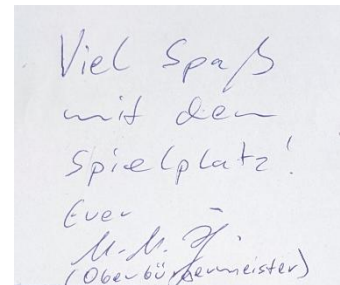 Viel Spaß
mit dem
Spielplatz!
Euer
(Oberbürgermeister)